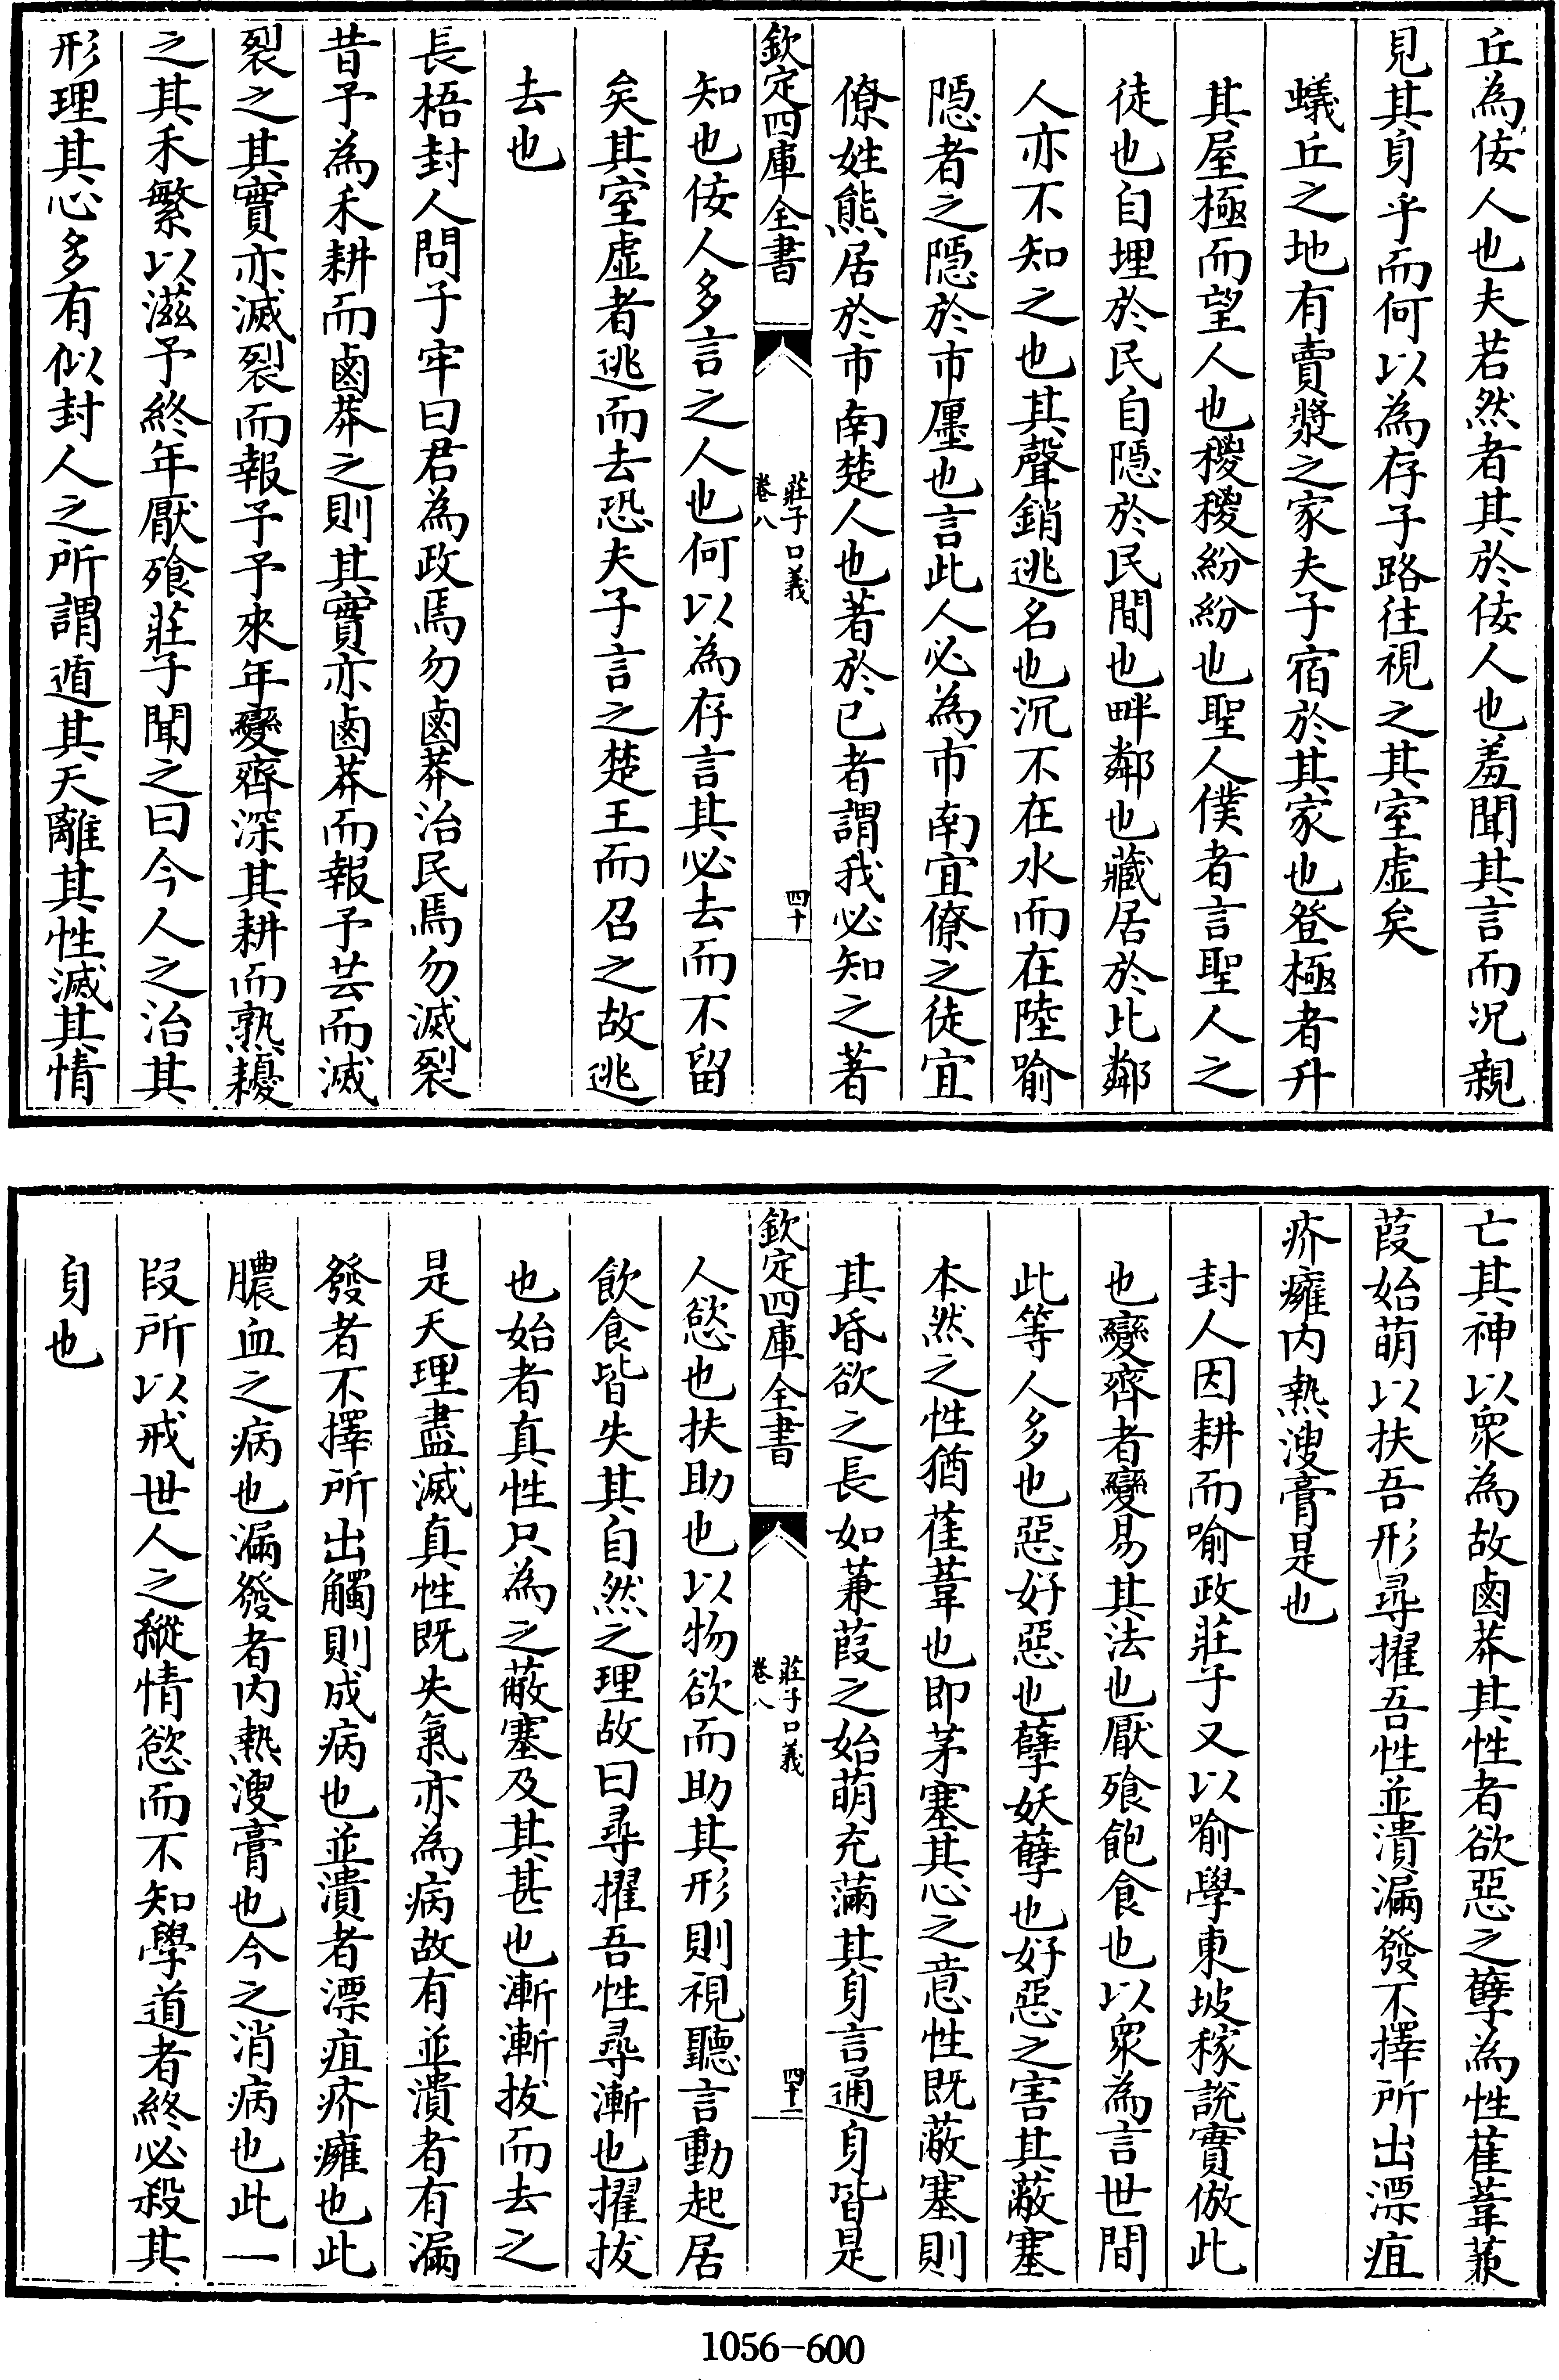 丘為佞人也夫若然者其於佞人也羞聞其言而況親
見其身乎而何以為存子路往視之其室虛矣
蟻丘之地有賣漿之家夫子宿於其家也登極者升
其屋極而望人也稯稯紛紛也聖人僕者言聖人之
徒也自埋於民自隱於民間也畔鄰也藏居於比鄰
人亦不知之也其聲銷逃名也沉不在水而在陸喻
隱者之隱於市廛也言此人必為市南宜僚之徒宜
僚姓熊居於市南楚人也著於已者謂我必知之著
欽定四庫全書
莊子口義
卷八
四十
知也佞人多言之人也何以為存言其必去而不留
矣其室虛者逃而去恐夫子言之楚王而召之故逃
去也
長梧封人問子牢曰君為政焉勿鹵莽治民焉勿滅裂
昔予為禾耕而鹵莽之則其實亦鹵莽而報予芸而滅
裂之其實亦滅裂而報予予來年變齊深其耕而熟耰
之其禾繁以滋予終年厭飱莊子聞之曰今人之治其
形理其心多有似封人之所謂遁其天離其性滅其情
亡其神以衆為故鹵莽其性者欲惡之孽為性萑葦蒹
葭始萌以扶吾形尋擢吾性並潰漏發不擇所出漂疽
疥癰内熱溲膏是也
封人因耕而喻政莊子又以喻學東坡稼說實倣此
也變齊者變易其法也厭飱飽食也以衆為言世間
此等人多也惡好惡也孽妖孽也好惡之害其蔽塞
本然之性猶萑葦也即茅塞其心之意性既蔽塞則
其昏欲之長如蒹葭之始萌充滿其身言通身皆是
欽定四庫全書
莊子口義
卷八
四十一
人慾也扶助也以物欲而助其形則視聽言動起居
飲食皆失其自然之理故曰尋擢吾性尋漸也擢拔
也始者真性只為之蔽塞及其甚也漸漸拔而去之
是天理盡滅真性既失氣亦為病故有並潰者有漏
發者不擇所出觸則成病也並潰者漂疽疥癰也此
膿血之病也漏發者内熱溲膏也今之消病也此一
段所以戒世人之縱情慾而不知學道者終必殺其
身也
1056-600